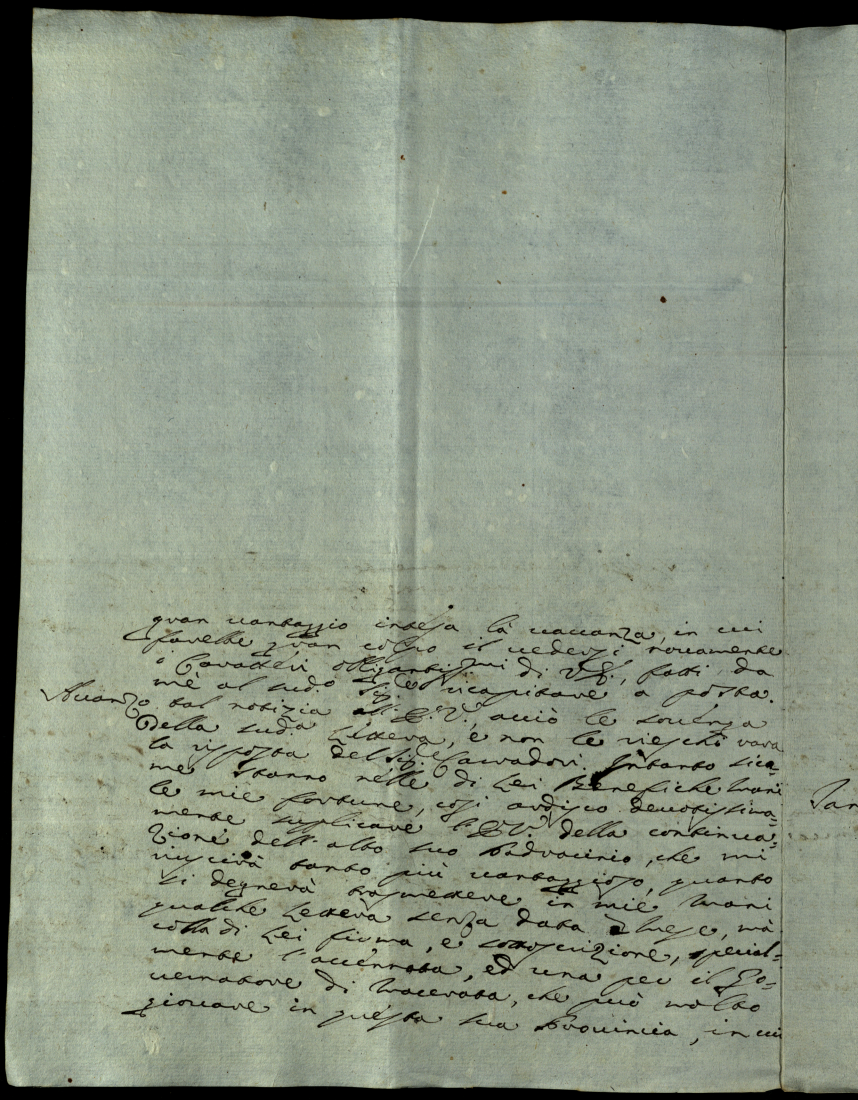 gran vantaggio intesa la vacanza, in cui
farebbe gran colpo il vedersi novamente
i Caratteri obligantissimi di V.E., fatti da
mè al sud.o Sig.r ricapitare a posta.
Avanzo tal notizia all'E.V., acciò le sovenga
della sud.a Lettera, e non le rieschi vara
la risposta del Sig.r Salvadori. Intanto sico-
me stanno nelle di Lei Benefiche mani
le mie fortune, così ardisco devotissima-
mente suplicare l'E.V. della continua-
zione dell'alto suo Padrocinio, che mi
riuscirà tanto più vantaggioso, quanto
si degnerà trasmettere in mie mani
qualche Lettera senza data, e mese, mà
colla di Lei firma, e sottoscrizione, special-
mente l'accennata, ed una per il Go-
vernatore di Macerata, che può molto
giovare in questa sua Provincia, in cui